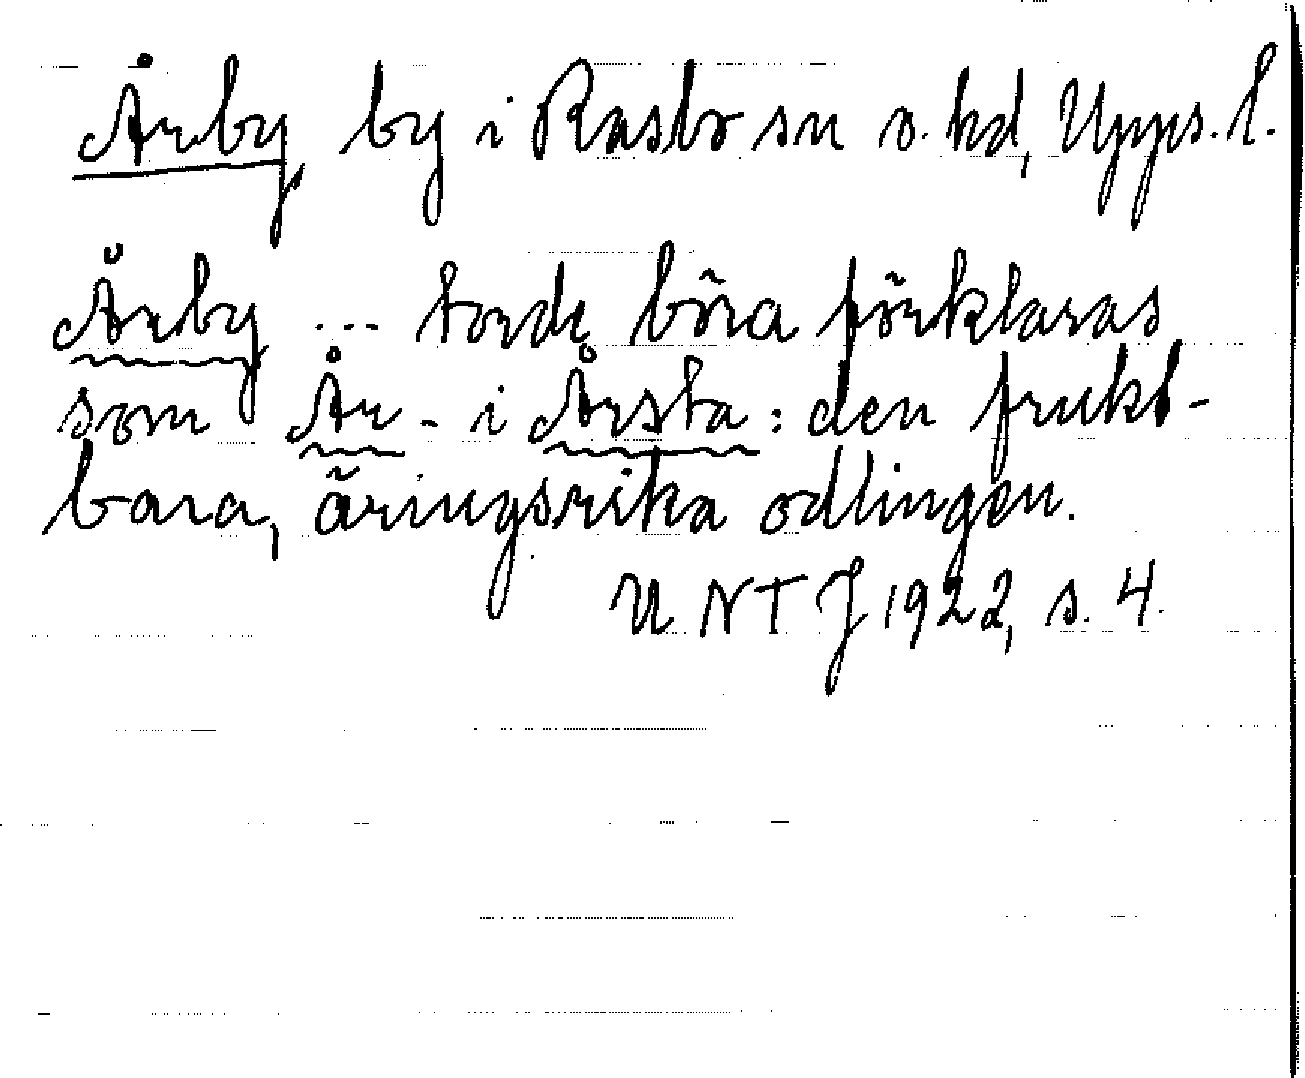 Årby, by i Rasbo sn o. hd, Upps. l.
Årby ... torde böra förklaras
som År- i Årsta: den frukt-
bara, äringsrika odlingen.
UNTJ 1922, s. 4.